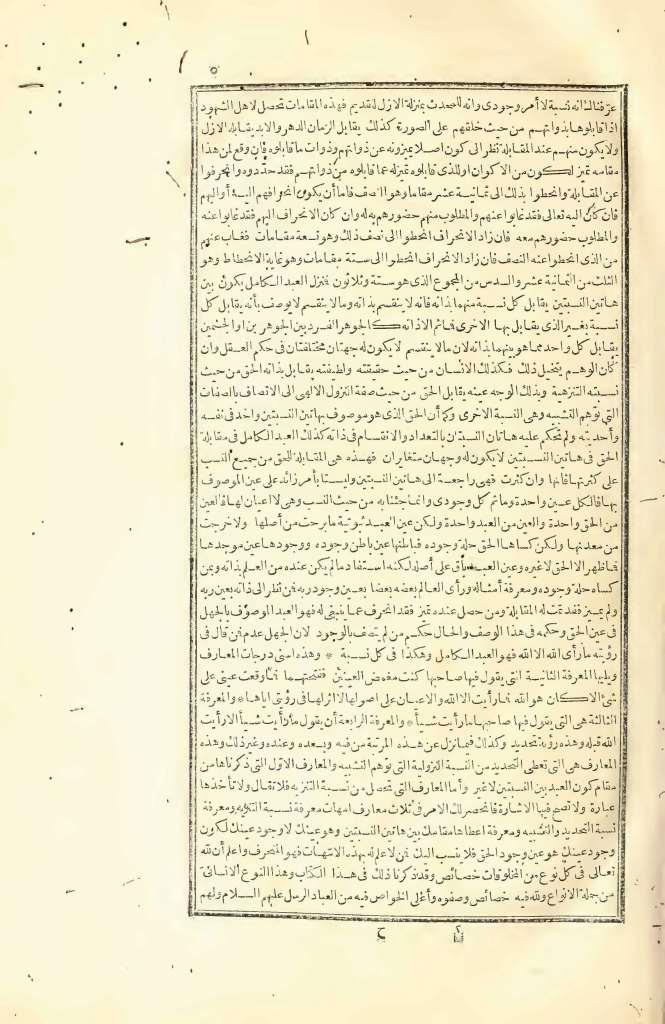 ٥
عرفناك انه نسبة لا أمر وجودى وانه للمحدث بمنزلة الازل للقديم فهذه المقامات تحصل لاهل الشهود
اذا قابلوها بذواتهم من حيث خلقهم على الصورة كذلك يقابل الزمان الدهر والابد يقابله الازل
ولا يكون منهم عند المقابلة نظر الى كون اصلا يميزونه عن ذواتهم وذوات ما قابلوه فان وقع لمن هذا
مقامه تميز لكون من الاكوان او للذى قابلوه تميز له عما قابلوه من ذواتهم فقد حددوه وانحرفوا
عن المقابلة وانحطوا بذلك الى ثمانية عشر مقاما وهو النصف فاما أن يكون انحرافهم اليه أو اليهم
فان كان اليه تعالى فقد غابوا عنهم والمطلوب منهم حضورهم به له وان كان الانحراف اليهم فقد غابوا عنه
والمطلوب حضورهم معه فان زاد الانحراف انحطوا الى نصف ذلك وهو تسعة مقامات فغاب عنهم
من الذى انحطوا عنه النصف فان زاد الانحراف انحطوا الى ستة مقامات وهو غاية الانحطاط وهو
الثلث من الثمانية عشر والسدس من المجموع الذى هو ستة وثلاثون فنزل العبد الكامل يكون بين
هاتين النسبتين يقابل كل نسبة منهما بذاته فانه لا ينقسم بذاته وما لا ينقسم لا يوصف بأنه يقابل كل
نسبة بغير الذى يقابل بها الاخرى فما ثم الا ذاته كالجوهر الفرد بين الجوهرين او الجسمين
يقابل كل واحد مما هو بينهما بذاته لان ما لا ينقسم لا يكون له جهتان مختلفتان فى حكم العقل وان
كان الوهم يتخيل ذلك فكذلك الانسان من حيث حقيقته ولطيفته يقابل بذاته الحق من حيث
نسبته التنزيهية وبذلك الوجه عينه يقابل الحق من حيث صفة النزول الالهى الى الاتصاف بالصفات
التى توهم التشبيه وهى النسبة الاخرى وكما أن الحق الذى هو موصوف بهاتين النسبتين واحد فى نفسه
وأحديته ولم تحكم عليه هاتان النسبتان بالتعداد والانقسام فى ذاته كذلك العبد الكامل فى مقابلة
الحق فى هاتين النسبتين لا يكون له وجهان متغايران فهذه هى المقابلة للحق من جميع النسب
على كثرتها فانها وان كثرت فهى راجعة الى هاتين النسبتين وليستا بأمر زائد على عين الموصوف
بها فالكل عين واحدة وما ثم كل وجودى وانما جئنا به من حيث النسب وهى لا اعيان لها فالعين
من الحق واحدة والعين من العبد واحدة ولكن عين العبد ثبوتية ما برحت من أصلها ولا خرجت
من معدنها ولكن كساها الحق حلة وجوده فباطنها عين باطن وجوده ووجودها عين موجدها
فما ظهر الا الحق لا غيره وعين العبد باق على أصله لكنه استفاد ما لم يكن عنده من العلم بذاته وبمن
كساه حلة وجوده ومعرفة أمثاله ورأى العالم بعضه بعضا بعين وجود ربه فمن نظر الى ذاته بعين ربه
ولم يميز فقد تمت له المقابلة ومن حصل عنده تميز فقد انحرف عما ينبغى له فهو العبد الموصوف بالجهل
فى عين الحق وحكمه فى هذا الوصف والحال حكم من لم يتصف بالوجود لان الجهل عدم فمن قال فى
رؤيته ما رأى الله الا الله فهو العبد الكامل وهكذا فى كل نسبة * وهذه اسنى درجات المعارف
ويليها المعرفة الثانية التى يقول فيها صاحبها كنت مغمض العينين ففتحتهما فما وقعت عينى على
شئ الا كان هو الله فما رأيت الا الله والاعيان على اصولها لا اثر لها فى رؤيتى اياها * والمعرفة
الثالثة هى التى يقول فيها صاحبها ما رأيت شيأ * والمعرفة الرابعة أن يقول ما رأيت شيأ الا رأيت
الله قبله وهذه رؤية تحديد وكذلك فيما نزل عن هذه المرتبة من فيه وبعده وعنده وغير ذلك وهذه
المعارف هى التى تعطى التحديد من النسبة النزولية التى توهم التشبيه والمعارف الاول التى ذكرناها من
مقام كون العبد بين النسبتين لا غير وأما المعارف التى تحصل من نسبة التنزيه فلا تقال ولا تأخذها
عبارة ولا تصح فيها الاشارة فانحصر لك الامر فى ثلاث معارف امهات معرفة نسبة التنزيه ومعرفة
نسبة التحديد والتشبيه ومعرفة اعطاها مقامك بين هاتين النسبتين وهو عينك لا وجود عينك لكون
وجود عينك هو عين وجود الحق فلا ينسب اليك فمن لا علم له بهذه الامهات فهو المنحرف واعلم أن لله
تعالى فى كل نوع من المخلوقات خصائص وقد ذكرنا ذلك فى هذا الكتاب وهذا النوع الانسانى
من جملة الانواع ولله فيه خصائص وصفوه وأعلى الخواص فيه من العباد الرسل عليهم السلام ولهم